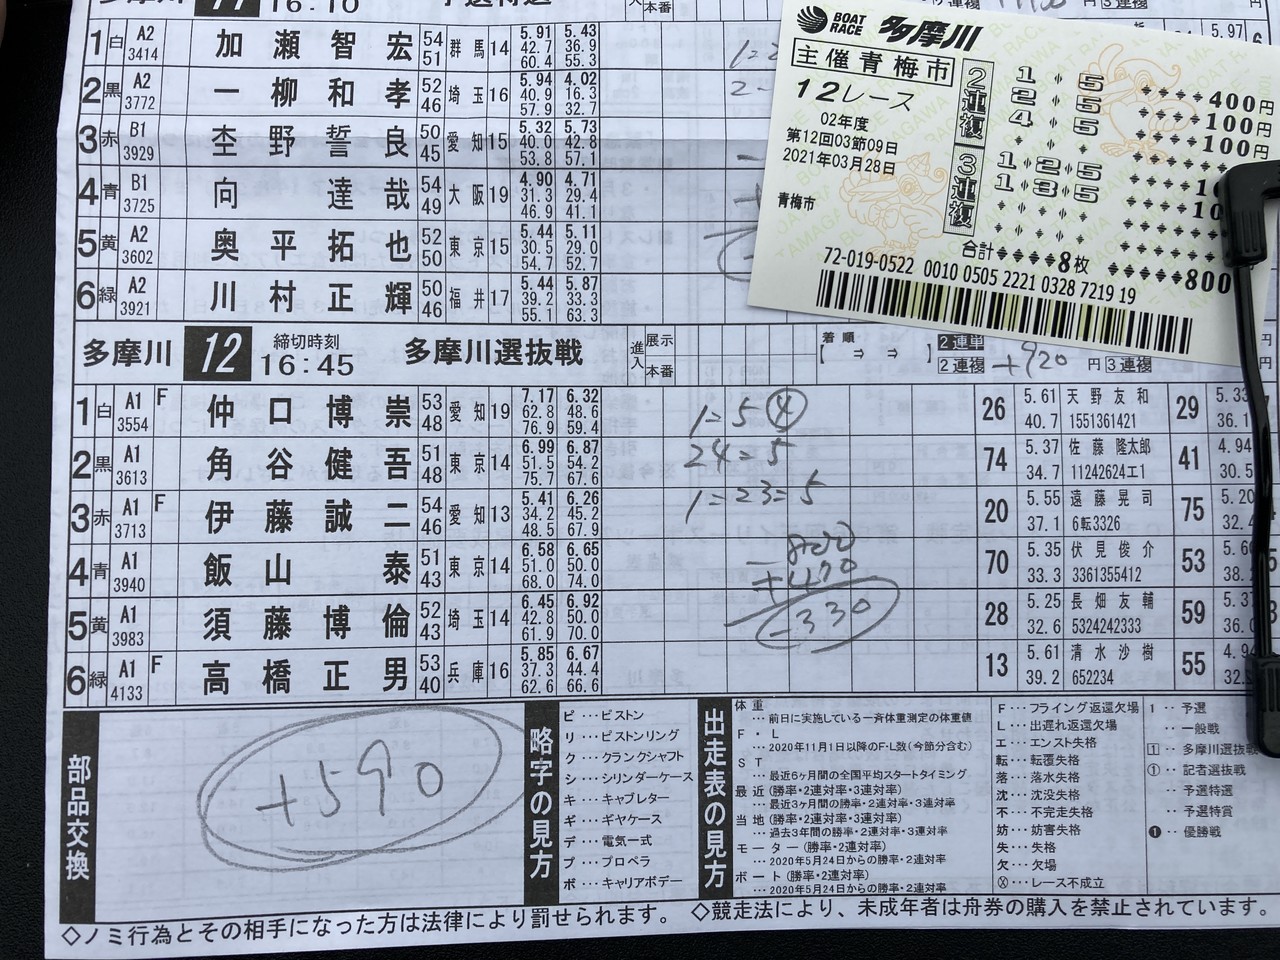 多摩川 11 16:10 予選特選
1 白 A2 3414 加瀬智宏 54 51 群馬 14 5.91 42.7 60.4 5.43 36.9 55.3
2 黒 A2 3772 一柳和孝 52 46 埼玉 16 5.94 40.9 57.9 4.02 16.3 32.7
3 赤 B1 3929 杢野誓良 50 45 愛知 15 5.32 40.0 53.8 5.73 42.8 57.1
4 青 B1 3725 向達哉 54 49 大阪 19 4.90 31.3 46.9 4.71 29.4 41.1
5 黄 A2 3602 奥平拓也 52 50 東京 15 5.44 30.5 54.7 5.11 29.0 52.7
6 緑 A2 3921 川村正輝 50 46 福井 17 5.44 39.2 55.1 5.87 33.3 63.3
BOAT RACE 多摩川
主催青梅市
12レース
02年度
第12回03節09日
2021年03月28日
青梅市
2連複
1・5 400円
2・5 100円
4・5 100円
3連複
1・2・5
1・3・5
合計 8枚 800
72-019-0522 0010 0505 2221 0328 7219 19
多摩川 12 締切時刻 16:45 多摩川選抜戦 進入 展示 本番 着順 【 ⇒ ⇒ 】 2連単 2連複 +920 円 3連複
1 白 A1 3554 F 仲口博崇 53 48 愛知 19 7.17 62.8 76.9 6.32 48.6 59.4 1=5④ 26 5.61 40.7 天野友和 1551361421 29 5.33 36.1
2 黒 A1 3613 角谷健吾 51 48 東京 14 6.99 51.5 75.7 6.87 54.2 67.6 24=5 74 5.37 34.7 佐藤隆太郎 11242624エ1 41 4.94 30.5
3 赤 A1 3713 F 伊藤誠二 54 46 愛知 13 5.41 34.2 48.5 6.26 45.2 67.9 1=23=5 20 5.55 37.1 遠藤晃司 6転3326 75 5.20 32.4
4 青 A1 3940 飯山泰 51 43 東京 14 6.58 51.0 68.0 6.65 50.0 74.0 -800 +470 70 5.35 33.3 伏見俊介 3361355412 53
5 黄 A1 3983 須藤博倫 52 43 埼玉 14 6.45 42.8 61.9 6.92 50.0 70.0 -330 28 5.25 32.6 長畑友輔 5324242333 59 5.37 36.0
6 緑 A1 4133 F 高橋正男 53 40 兵庫 16 5.85 37.3 62.6 6.67 44.4 66.6 13 5.61 39.2 清水沙樹 652234 55 4.94
部品交換
+590
略字の見方
ピ…ピストン
リ…ピストンリング
ク…クランクシャフト
シ…シリンダーケース
キ…キャブレター
ギ…ギヤケース
デ…電気一式
プ…プロペラ
ボ…キャリアボデー
出走表の見方
体重
…前日に実施している一斉体重測定の体重値
F・L
…2020年11月1日以降のF・L数(今節分含む)
ST
…最近6ヶ月間の全国平均スタートタイミング
最近(勝率・2連対率・3連対率)
…最近3ヶ月間の勝率・2連対率・3連対率
当地(勝率・2連対率・3連対率)
…過去3年間の勝率・2連対率・3連対率
モーター(勝率・2連対率)
…2020年5月24日からの勝率・2連対率
ボート(勝率・2連対率)
…2020年5月24日からの勝率・2連対率
F…フライング返還欠場
L…出遅れ返還欠場
エ…エンスト失格
転…転覆失格
落…落水失格
沈…沈没失格
不…不完走失格
妨…妨害失格
失…失格
欠…欠場
Ⓧ…レース不成立
1‥予選
‥一般戦
1‥多摩川選抜戦
①‥記者選抜戦
‥予選特選
‥予選特賞
❶‥優勝戦
◇ノミ行為とその相手になった方は法律により罰せられます。 ◇競走法により、未成年者は舟券の購入を禁止されています。